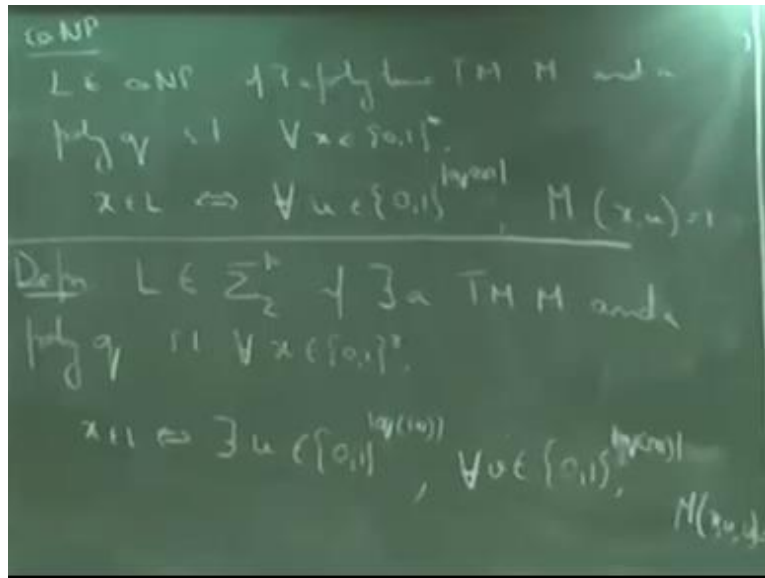 coNP
L ∈ coNP if ∃ a poly time TM M and a
poly q st ∀ x ∈ {0,1}*,
x ∈ L ⇔ ∀ u ∈ {0,1}^|q(|x|)|, M(x,u)=1
Defn L ∈ Σ₂ᵖ if ∃ a TM M and a
poly q st ∀ x ∈ {0,1}*,
x ∈ L ⇔ ∃ u ∈ {0,1}^|q(|x|)|, ∀ v ∈ {0,1}^|q(|x|)|,
M(x,u,v)